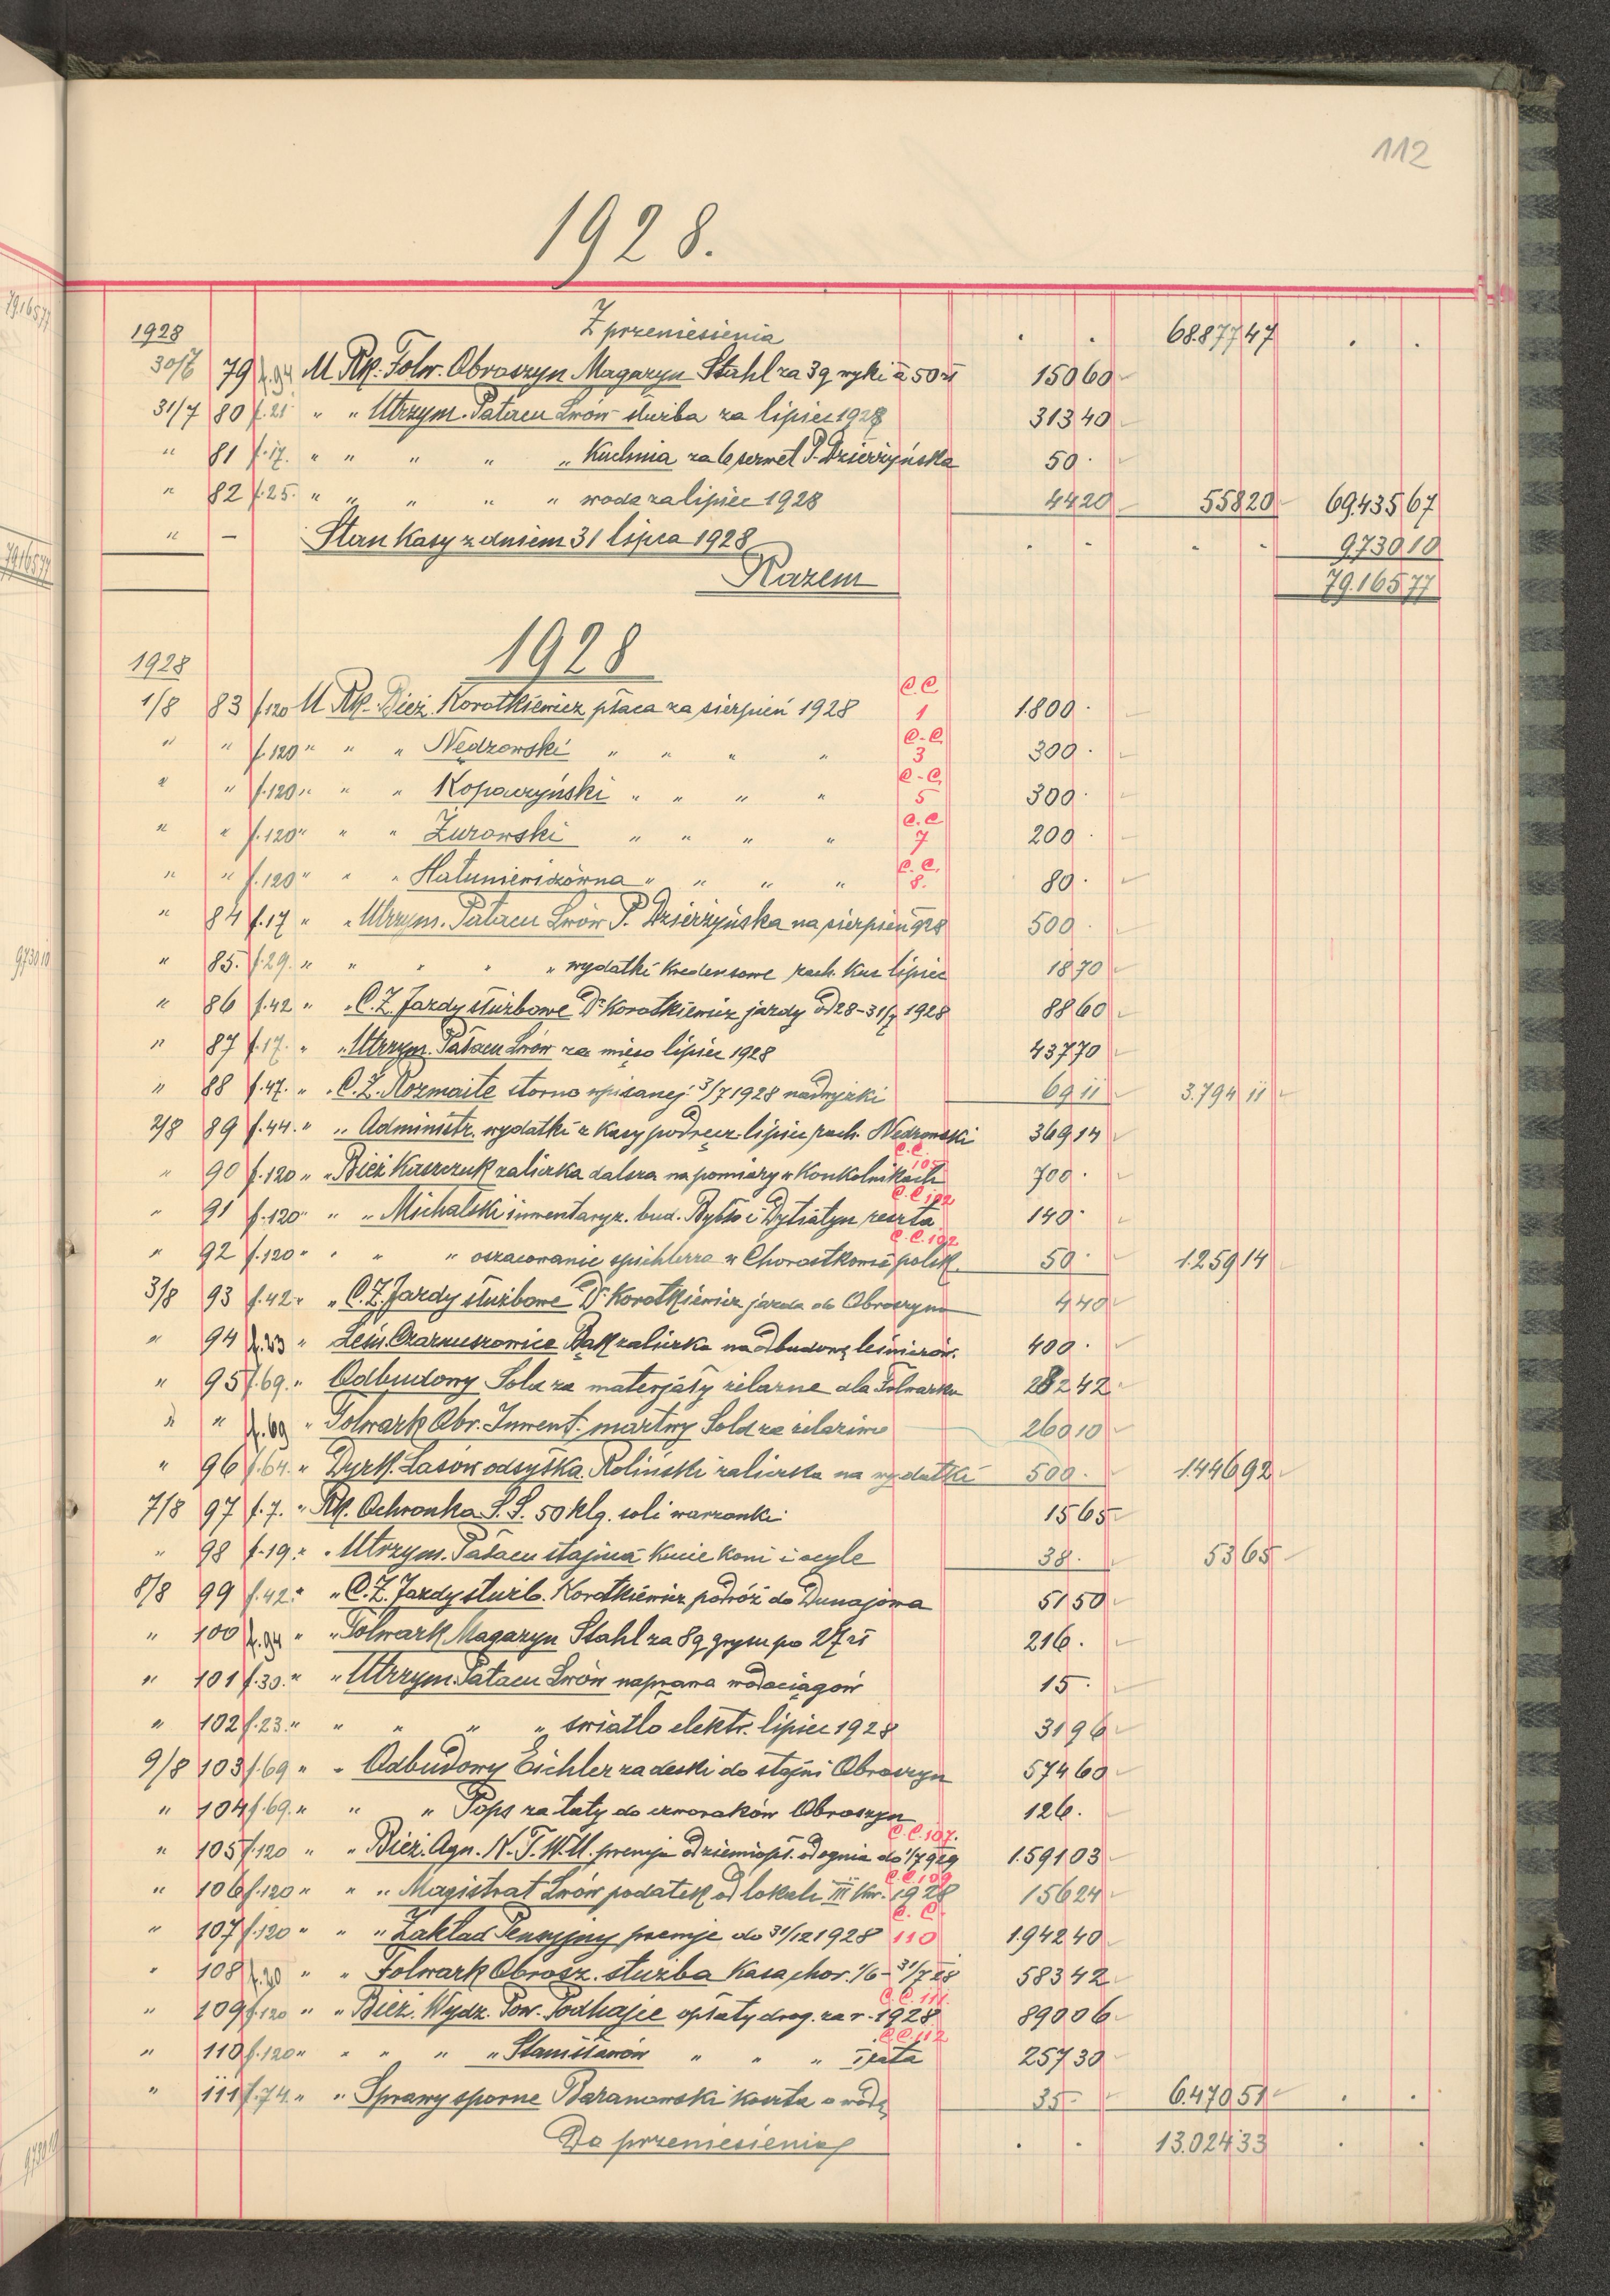 112
1928.
1928 Z przeniesienia . . 68.877 47 . .
30/7 79 f.94 M Rk. Folw. Obroszyn Magazyn Stahl za 3q wyki à 50 zł 150 60
31/7 80 f.21 " " Utrzym. Pałacu Lwów służba za lipiec 1928 313 40
" 81 f.17. " " " " " Kuchnia za 6 serwet P. Dzierżyńska 50 .
" 82 f.25. " " " " " woda za lipiec 1928 44 20 558 20 69.435 67
" — Stan Kasy z dniem 31 lipca 1928 . . . . 9730 10
Razem 79.165 77
1928
1928
1/8 83 f.120 M Rk. Bież. Korotkiewicz płaca za sierpień 1928 C.C. 1 1.800 .
" " f.120 " " " Nędzowski " " " " C.C. 3 300 .
" " f.120 " " " Kopaczyński " " " " C.C. 5 300 .
" " f.120 " " " Żurowski " " " " C.C. 7 200 .
" " f.120 " " " Hatuniewiczówna " " " " C.C. 8. 80 .
" 84 f.17 " " Utrzym. Pałacu Lwów P. Dzierżyńska na sierpień 928 500 .
" 85. f.29. " " " " " wydatki kredensowe rach. Kuc lipiec 18 70
" 86 f.42 " " C.Z. Jazdy służbowe Dr Korotkiewicz jazdy od 28-31/7 1928 88 60
" 87 f.17. " " Utrzym. Pałacu Lwów za mięso lipiec 1928 437 70
" 88 f.47. " " C.Z. Rozmaite storno wpisanej 3/7 1928 nadwyżki 69 11 3.794 11
2/8 89 f.44. " " Administr. wydatki z Kasy podręcz. lipiec rach. Nedzowski 369 14
" 90 f.120 " " Bież Kaszczuk zaliczka dalsza na pomiary w Konkolnikach C.C. 105 700 .
" 91 f.120 " " " Michalski inwentaryz. bud. Bybło i Dytiatyn reszta C.C. 102 140 .
" 92 f.120 " " " " oszacowanie spichlerza w Chorostkowie polsk. C.C. 102 50 . 1.259 14
3/8 93 f.42 " " C.Z. Jazdy służbowe Dr Korotkiewicz jazda do Obroszyna 4 40
" 94 f.33 " Leśn. Czarnuszowice Bąk zaliczka na odbudowę leśniczów. 400 .
" 95 f.69. " Odbudowy Sold za materjały żelazne dla Folwarku 282 42
" " f.69 " Folwark Obr. Inwent. martwy Sold za żelaziwo 260 10
" 96 f.64. " Dyrk. Lasów odsyłka. Roliński zaliczka na wydatki 500 . 1.446 92
7/8 97 f.7. " Rk. Ochronka S.S. 50 klg. soli warzonki 15 65
" 98 f.19. " " Utrzym. Pałacu stajnia kucie koni i ocyle 38 . 53 65
8/8 99 f.42. " " C.Z. Jazdy służb. Korotkiewicz podróż do Dunajowa 51 50
" 100 f.94 " " Folwark Magazyn Stahl za 8q grysu po 27 zł 216 .
" 101 f.30. " " Utrzym. Pałacu Lwów naprawa wodociągów 15 .
" 102 f.23. " " " " " światło elektr. lipiec 1928 31 96
9/8 103 f.69 " " Odbudowy Eichler za deski do stajni Obroszyn 574 60
" 104 f.69. " " " Pops za łaty do czworaków Obroszyn 126 .
" 105 f.120 " " Bież. Agn. N. T.W.U. premja od ziemiopł. od ognia do 1/7 929 C.C. 107. 1.591 03
" 106 f.120 " " " Magistrat Lwów podatek od lokali III kw. 1928 C.C. 109 156 24
" 107 f.120 " " " Zakład Pensyjny premje do 31/12 1928 C.C. 110 1.942 40
" 108 f.20 " " Folwark Obrosz. służba Kasa chor. 1/6-31/7 28 583 42
" 109 f.120 " " Bież. Wydz. Pow. Podhajce opłaty drog. za r. 1928 C.C. 111. 890 06
" 110 f.120 " " " " " Stanisławów " " " I rata C.C. 112 257 30
" 111 f.74. " " Sprawy sporne Baranowski koszta o wodę 35 - 6.470 51 . .
Do przeniesienia . . 13.024 33 . .